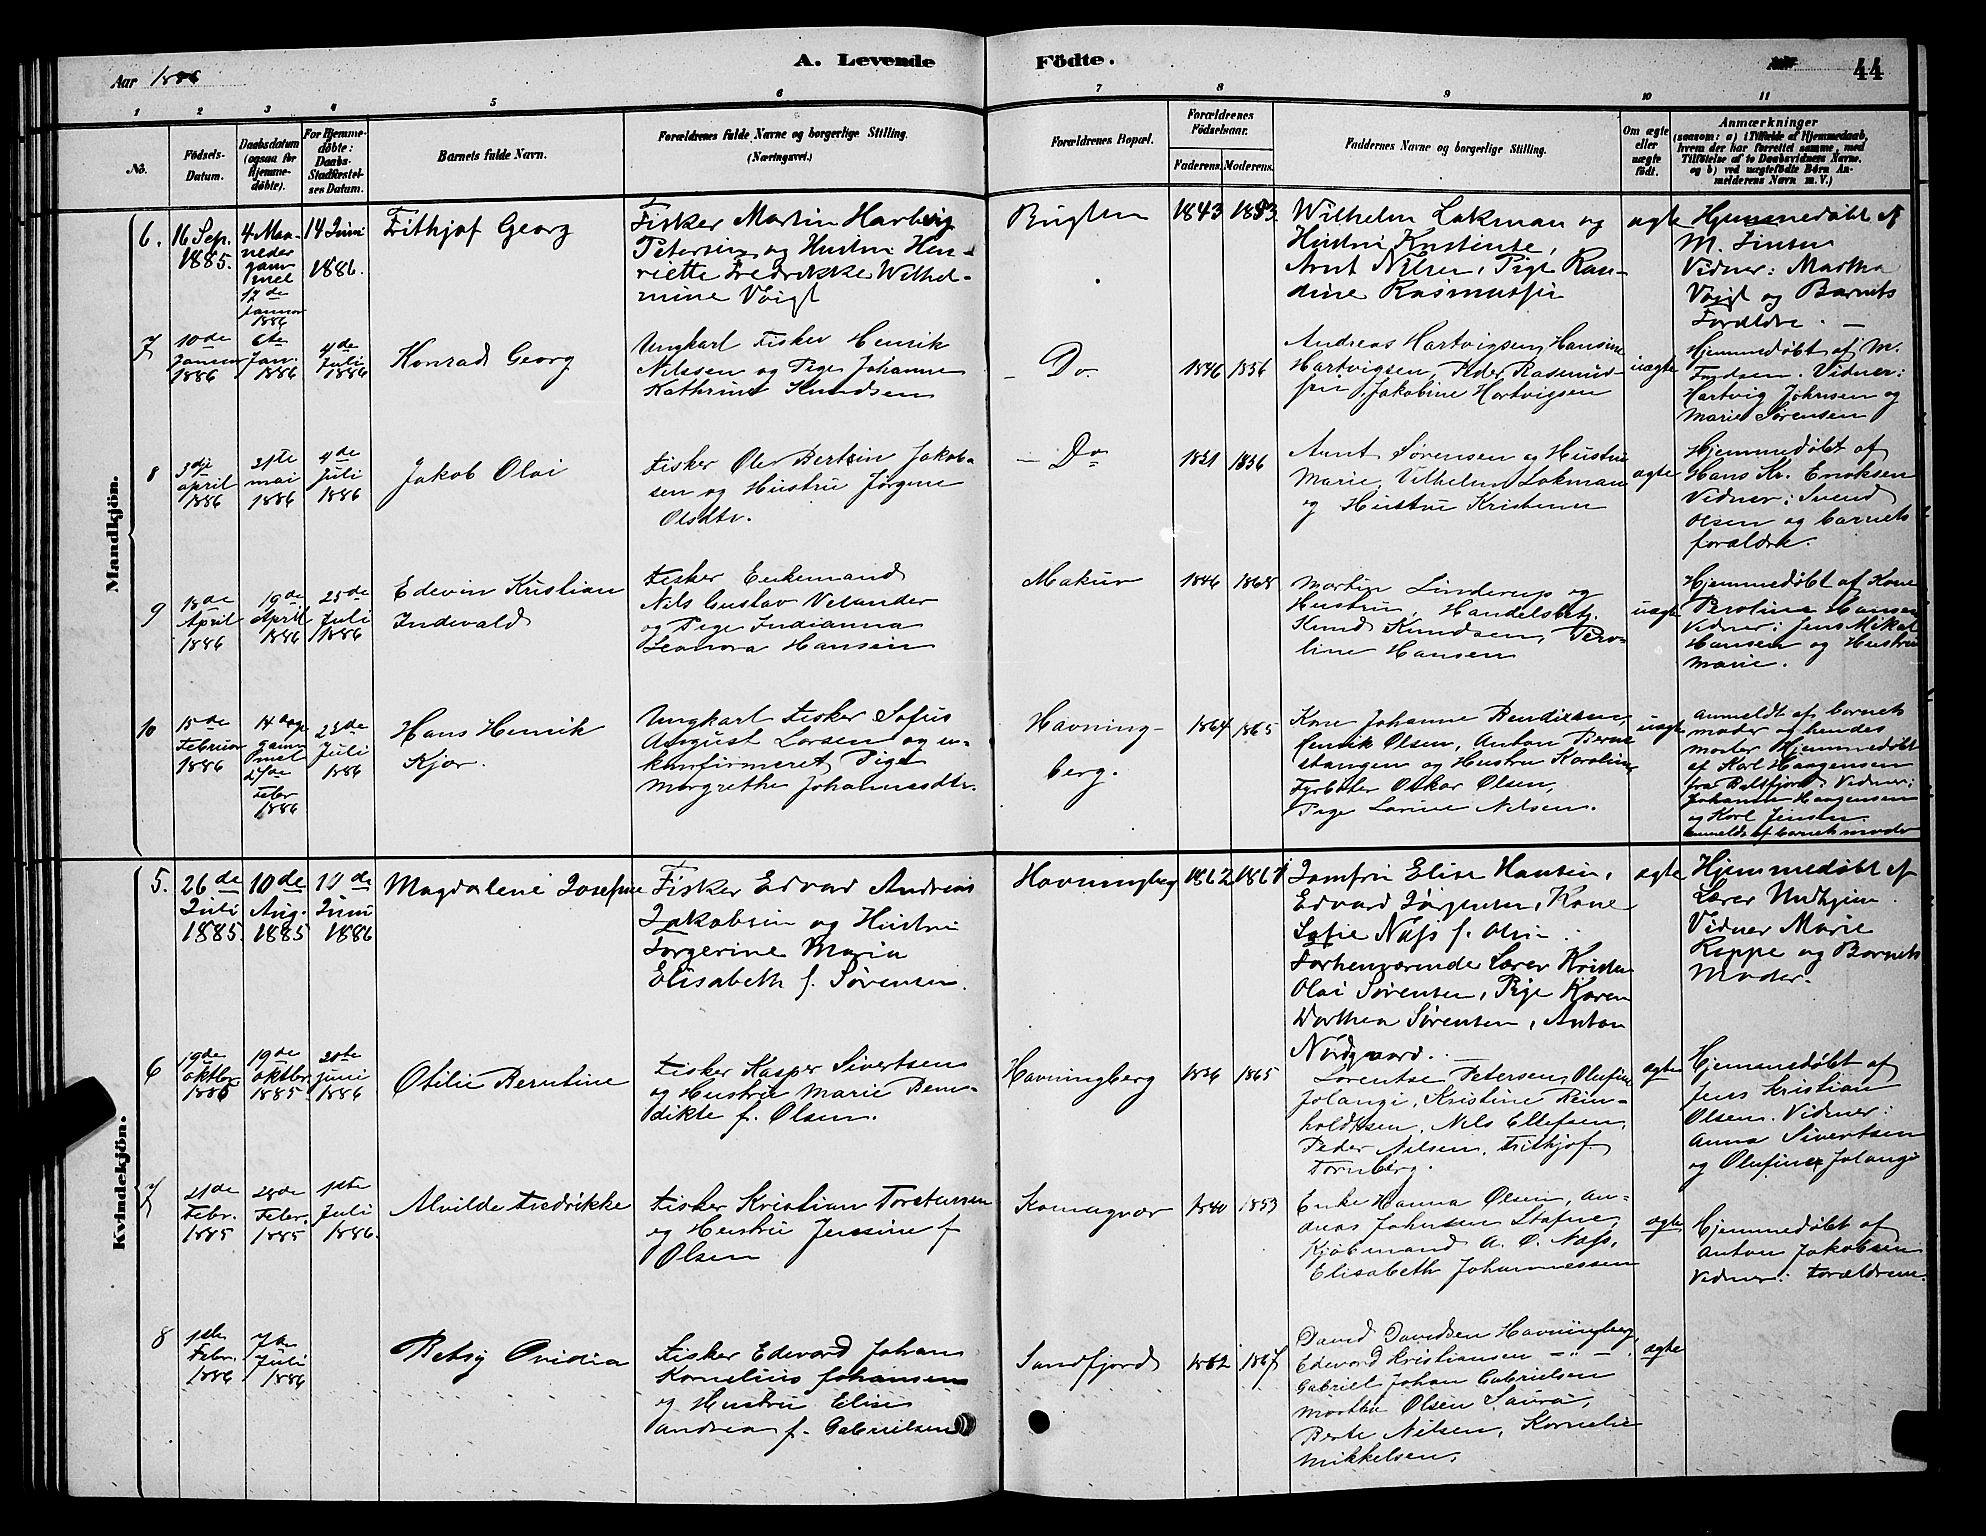 Aar 1886
A. Levende
Födte.
44
1
2
3
4
5
6
7
8
9
10
11
No.
Födsels-
Datum.
Daabsdatum
(ogsaa for
Hjemme-
döbte).
For Hjemme-
döbte:
Daabs-
Stadfæstel-
ses Datum.
Barnets fulde Navn.
Forældrenes fulde Navne og borgerlige Stilling.
(Næringsvei.)
Forældrenes Bopæl.
Forældrenes
Födselsaar.
Faderens.
Moderens.
Faddernes Navne og borgerlige Stilling.
Om ægte
eller
uægte
födt.
Anmærkninger
(saasom: a) i Tilfælde af Hjemmedaab,
hvem der har forrettet samme, med
Tilföielse af to Daabsvidners Navne.
og b) ved uægtefödte Börn An-
melderens Navn m. V.)
Mandkjön.
6.
16 Sep.
1885.
4 Maa-
neder
gam-
mel
17 de
Januar
1886
14 Juni
1886.
Frithjof Georg
Fisker Martin Hartvig
Petersen og Hustru Hen-
riette Fredrikke Wilhel-
mine Voigt
Bugten
1843
1853
Wilhelm Lakman og
Hustru Kristense,
Arnt Nilsen, Pige Ran-
dine Rasmussen
ægte
Hjemmedøbt af
M. Finsen
Vidner: Martha
Voigt og Barnets
Forældre. —
7
10 de
Januar
1886
6te
Jan.
1886
4de
Juli
1886
Konrad Georg
Ungkarl Fisker Henrik
Nilssen og Pige Johanne
Kathrine Knudsen
— Do
1846
1856
Andreas Hartvigsen, Hansine
Hartvigsen, Peder Rasmus-
sen, Jakobine Hartvigsen
uægte
Hjemmedøbt af M.
Vidner:
Hartvig Johnsen og
Marie Sørensen
8
3die
april
1886
31te
mai
1886
4de
Juli
1886
Jakob Olai
Fisker Ole Bertein Jakob-
sen og Hustru Jørgine
Olsdtr.
— Do
1831
1836
Arnt Sørensen og Hustru
Marie, Vilhelm Lokman
og Hustru Kristense
ægte
Hjemmedøbt af
Hans Kr. Enoksen
Vidner: Svend
Olsen og barnets
forældre.
9
18 de
April
1886
19 de
April
1886
25 de
Juli
1886
Edevin Kristian
Indevald
Fisker Enkemand
Nils Gustav Velander
og Pige Indianna
Leonora Hansen
Makur
1846
1868
Martin Linderup og
Hustru, Handelsbetj.
Knud Knudsen, Pero-
line Hansen
uægte
Hjemmedøbt af Kone
Peroline Hansen
Vidner: Jens Mikal
Hansen og Hustru
Marie.
10
15 de
Februar
1886
14 dage
gam-
mel
27de
Febr
1886
25 de
Juli
1886
Hans Henrik
Kjær.
Ungkarl Fisker Sofus
August Larsen og u-
konfirmeret Pige
Margrethe Johannesdtr.
Havning-
berg.
1864
1865
Kone Johanne Bendixsen,
Henrik Olsen, Anton Bern-
stangen og Hustru Karoline
Fyrbøter Oskar Olsen,
Pige Lovise Nilsen.
uægte
anmeldt af barnets
moder og hendes
moster Hjemmedøbt
af Karl Haagensen
fra Balsfjord. Vidner:
Johanne Haagensen
og Karl Jensen.
anmeldt af barnets moder
Kvindekjön.
5.
26 de
Juli
1885.
10 de
Aug.
1885
10 de
Juni
1886
Magdalene Josefine
Fisker Edvard Andreas
Jakobsen og Hustru
Torgerine Maria
Elisabeth f. Sørensen.
Havningberg
1862
1861
Jomfru Elise Hansen,
Edvard Jørgensen, Kone
Sofie Næss f. Olsen
Forhenværende Lærer Kristen
Olai Sørensen, Pige Karen
Dorthea Sørensen, Anton
Nordgaard. —
ægte
Hjemmedøbt af
Lærer Undhjem.
Vidner Marie
Reppe og Barnets
Moder.
6
19 de
oktbr
1885
19 de
oktbr
1885
20te
Juni
1886
Otilie Berntine
Fisker Kasper Sivertsen
og Hustru Marie Bene-
dikte f. Olsen.
Havningberg
1856
1865
Lorentse Petersen, Olufine
Jolangi, Kristine Rein-
holdtsen, Nils Ellefsen
Peder Nilsen, Frithjof
Tornberg.
ægte
Hjemmedøbt af
Jens Kristian
Olsen. Vidner:
Anna Sivertsen
og Olufine Jolangi
7
21 de
Febr.
1885
28 de
Febr.
1885
1ste
Juli
1886.
Alvilde Fredrikke
Fisker Kristian Torstensen
og Hustru Jensine f
Olsen
Komagvær
1840
1853
Enke Hanna Olsen, An-
dreas Johnsen Stafne,
Kjøbmand A. O. Næss,
Elisabeth Johannessen
ægte
Hjemmedøbt af
Anton Jakobsen
Vidner: Forældrene.
8
1ste
Febr.
1886
7de
Juli
1886
Betsy Ovidia
Fisker Edevard Johan
Kornelius Johansen
og Hustru Elise
Andrea f. Gabrielsen
Sandfjord
1862
1867
David Davidsen Havningberg,
Edevard Kristiansen — " —
Gabriel Johan Gabrielsen
Marthe Olsen Laura,
Berte Nilsen, Kornelie
Mikkelsen.
ægte